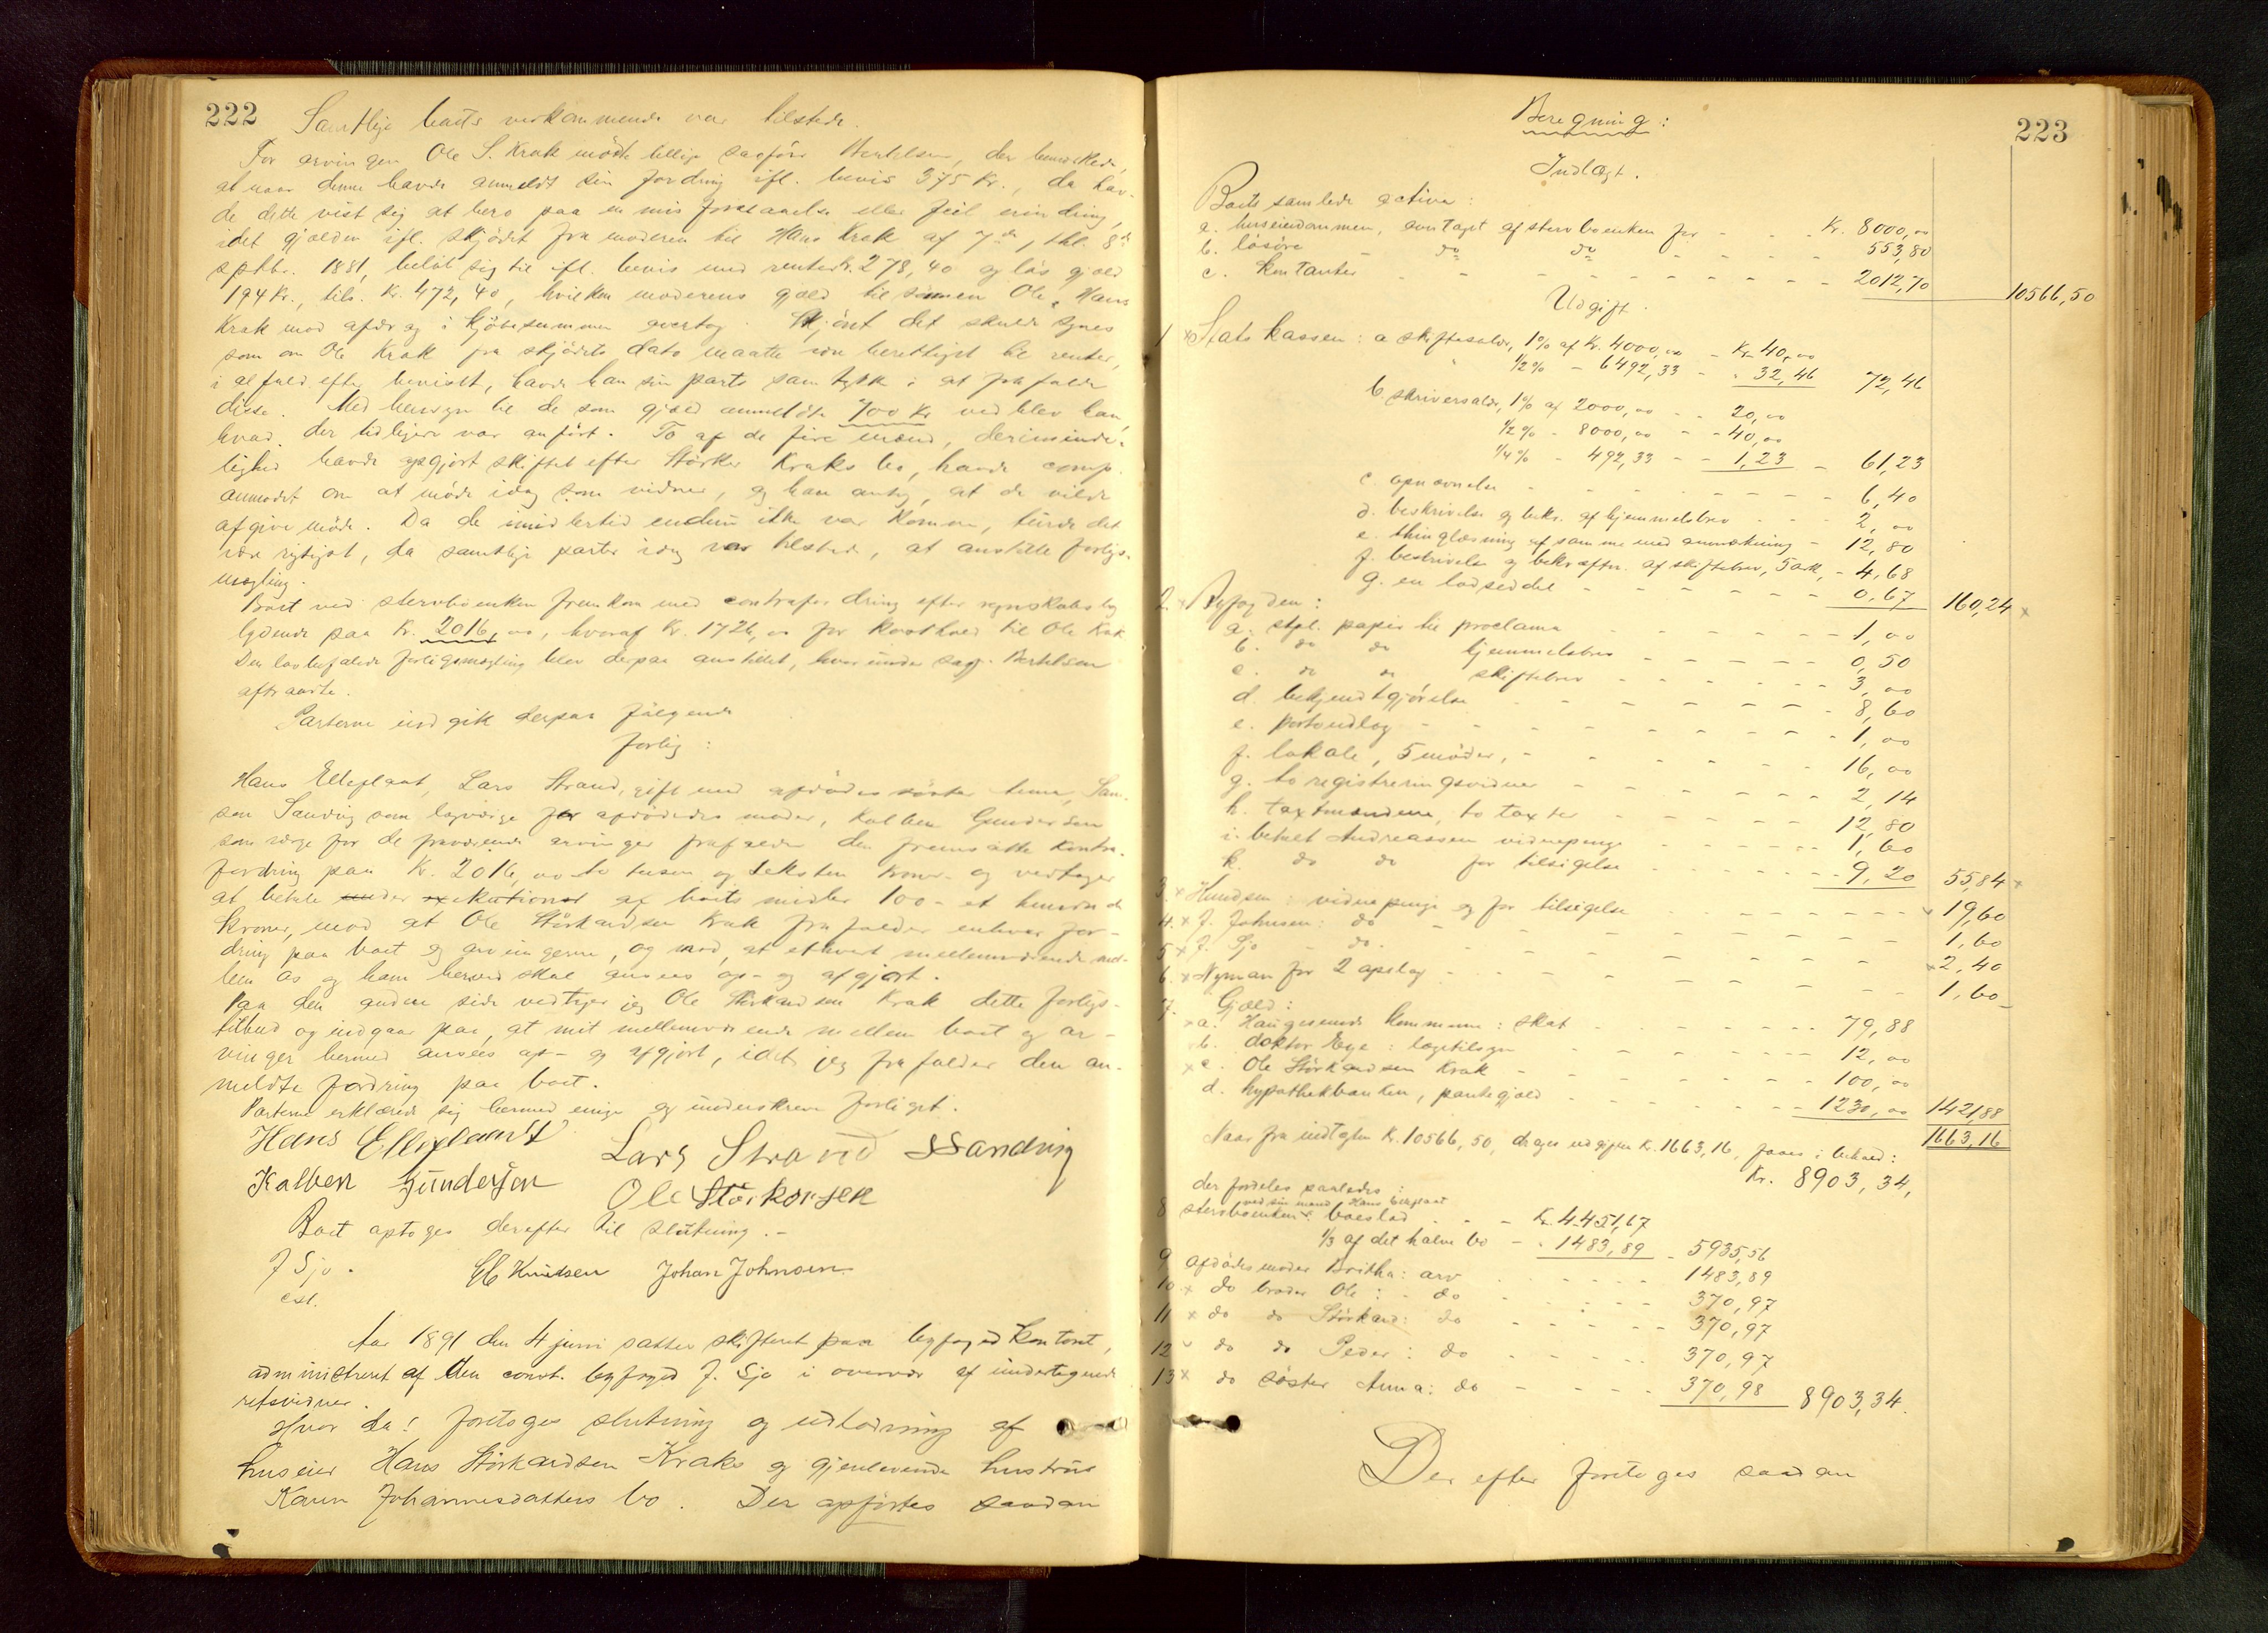 222
Samtlige boets vedkommende var tilstede.
For arvingen Ole S. Krak mödte tillige sagförer Bertelsen, der bemerkede,
at naar denne havde anmeldt sin fordring ifl. bevis 375 Kr., da hav-
de dette vist sig at bero paa en mis forstaaelse eller feil erindring,
idet gjælden ifl. skjödet fra moderen til Hans Krak af 7de, thl. 8de
septbr. 1881, belöb sig til ifl. bevis med renter Kr. 278,40 og lös gjæld
194 Kr., tils. Kr. 472,40, hvilken moderens gjæld til sönnen Ole, Hans
Krak mod afdrag i kjöbesummen overtog. Skjönt det skulde synes
som om Ole Krak fra skjödets dato maatte være berettiget til renter,
i alfald efter beviset, havde han sin parts samtykke i at frafalde
disse. Med hensyn til de som gjæld anmeldte 700 Kr ved blev han,
hvad der tidligere var anført. To af de fire mænd, der i minde-
lighed havde opgjort skiftet efter Störker Kraks bo, havde comp.
anmodet om at möde idag som vidner, og han antog, at de vilde
afgive möde. Da de imidlertid endnu ikke var komne, turde det
være rigtigst, da samtlige parter idag var tilstede, at anstille forligs-
mægling.
Boet ved sterboenken fremkom med contrafordring efter regnskabsbog
lydende paa Kr. 2016,00, hvoraf Kr. 1726,00 for kosthold til Ole Krak
Den lovbefalede forligsmægling blev derpaa anstillet, hvorunder sagf. Bertelsen
aftraadte.
Parterne indgik derpaa fölgende
forlig:
Hans Elleflaat, Lars Strand, gift med afdödes söster Anna, Sam-
son Sandvig som lagværge for afdödes moder, Kolben Gundersen
som verge for de fraværende arvinger frafalder den fremsatte kontra-
fordring paa Kr. 2016,00 to tusen og seksten kroner og vedtager
at betale under exekutioner af boets midler 100 - et hundrede
kroner, mod at Ole Störkersen Krak frafalder enhver for-
dring paa boet og arvingerne, og mod, at ethvert mellemværende mel-
lem os og ham herved skal ansees op- og afgjort.
Paa den anden side vedtager jeg Ole Störkersen Krak dette forligs-
tilbud og indgaar paa, at mit mellemværende mellem boet og ar-
vinger hermed ansees op- og afgjort, idet jeg frafalder den an-
meldte fordring paa boet.
Parterne erklærede sig hermed enige og underskrev forliget.
Hans Elleflaat Lars Strand SSandvig
Kolben Gundersen Ole Störkersen
Boet optoges derefter til slutning.-
J Sjo. Knudsen Johan Johnsen
cst.
Aar 1891 den 4 juni sattes skifteret paa byfogedkontoret,
administreret af den const. byfoged J. Sjo i overvær af undertegnede
retsvidner.
Hvor da! foretoges slutning og udlodning af
huseier Hans Störkersen Kraks og gjenlevende hustrus
Karen Johannesdatters bo. Der opfortes saadan
223
Beregning:
Indtægt.
Boets samlede activa:
a. huseiendommen, overtaget af sterboenken for - - Kr. 8000,00
b. lösöre do do - - - 553,80
c. kontanter - - - 2012,70 10566,50
Udgift.
1 x Statskassen: a skiftesalær, 1% af Kr. 4000,00 - Kr. 40,00
1/2% - 6492,33 - - 32,46 72,46
b skriversalær, 1% af 2000,00 - - 20,00
1/2% - 8000,00 - - 40,00
1/4% - 492,33 - - 1,23 - 61,23
c. opnævnelse - - - 6,40
d. beskrivelse og bekr. af hjemmelsbrev - - - 2,00
e. thinglæsning af samme med anmærkning - 12,80
f. beskrivelse og bekræftn. af skiftebrev, 5 ark, - 4,68
g. en lodseddel - - - 0,67 160,24 x
2. x Byfogden:
a. stpl. papir til proclama - - - 1,00
b. do do hjemmelsbrev - - - 0,50
c. do do skiftebrev - - - 3,00
d. bekjendtgjörelse - - - 8,60
e. portoudlæg - - - 1,00
f. lokale, 5 möder, - - - 16,00
g. to registreringsvidner - - - 2,14
h. taxtmændene, to taxter - - - 12,80
i. betalt Andreassen vidnepenge - - - 1,60
k. do do for tilsigelse - - - 9,20 55,84 x
3. x Knudsen: vidnepenge og for tilsigelse - - - 19,60
4. x J. Johnsen: do - - - 1,60
5 x J. Sjo - do. - - - x 2,40
6. x Nyman for 2 opslag - - - 1,60
7. Gjæld:
x a. Haugesunds kommune: skat - - - 79,88
b. doktor Eege: lægetilsyn - - - 12,00
x c. Ole Störkersen Krak - - - 100,00
d. hypothekbanken, pantegjæld - - - 1230,00 1421,88
1663,16
Naar fra indtægten Kr. 10566,50, drages udgiften Kr. 1663,16, faaes i behold:
Kr. 8903,34,
der fordeles saaledes:
ved sin mand Hans Elleflaat
8 sterboenken: boeslod - - - Kr. 4451,67
1/3 af det halve bo - - 1483,89 - 5935,56
9 afdödes moder Britha: arv - - - 1483,89
10 x do broder Ole: - do - - - 370,97
11 x do do Störkard: do - - - 370,97
12 do do Peder: do - - - 370,97
13 x do söster Anna: do - - - 370,98 8903,34.
Derefter foretoges saadan